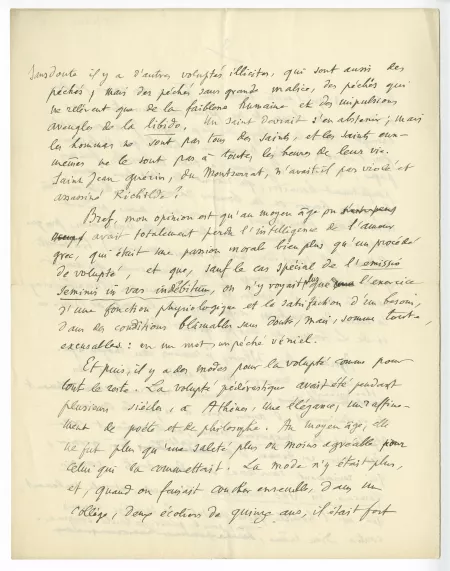 Sans doute il y a d'autres voluptés illicites, qui sont aussi des
péchés; mais des péchés sans grande malice, des péchés qui
ne relèvent que de la faiblesse humaine et des impulsions
aveugles de la libido. Un saint devrait s'en abstenir; mais
les hommes ne sont pas tous des saints, et les saints eux-
mêmes ne le sont pas à toutes les heures de leur vie.
Saint Jean Guérin, du Montserrat, n'avait-il pas violé et
assassiné Richilde?
Bref, mon opinion est qu'au moyen âge on
avait totalement perdu l'intelligence de l'amour
grec, qui était une passion morale bien plus qu'un procédé
de volupté, et que, sauf le cas spécial de l'emissio
seminis in vas indebitum, on n'y voyait plus que l'exercice
d'une fonction physiologique et la satisfaction d'un besoin,
dans des conditions blâmables sans doute, mais, somme toute,
excusables: en un mot, un péché véniel.
Et puis, il y a des modes pour la volupté comme pour
tout le reste. La volupté pédérastique avait été pendant
plusieurs siècles, à Athènes, une élégance, un raffine-
ment de poète et de philosophe. Au moyen âge, elle
ne fut plus qu'une saleté plus ou moins agréable pour
celui qui la commettait. La mode n'y était plus,
et, quand on faisait coucher ensemble, dans un
collège, deux écoliers de quinze ans, il était fort